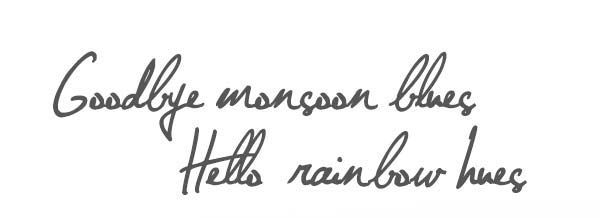 Goodbye monsoon blues
Hello rainbow hues